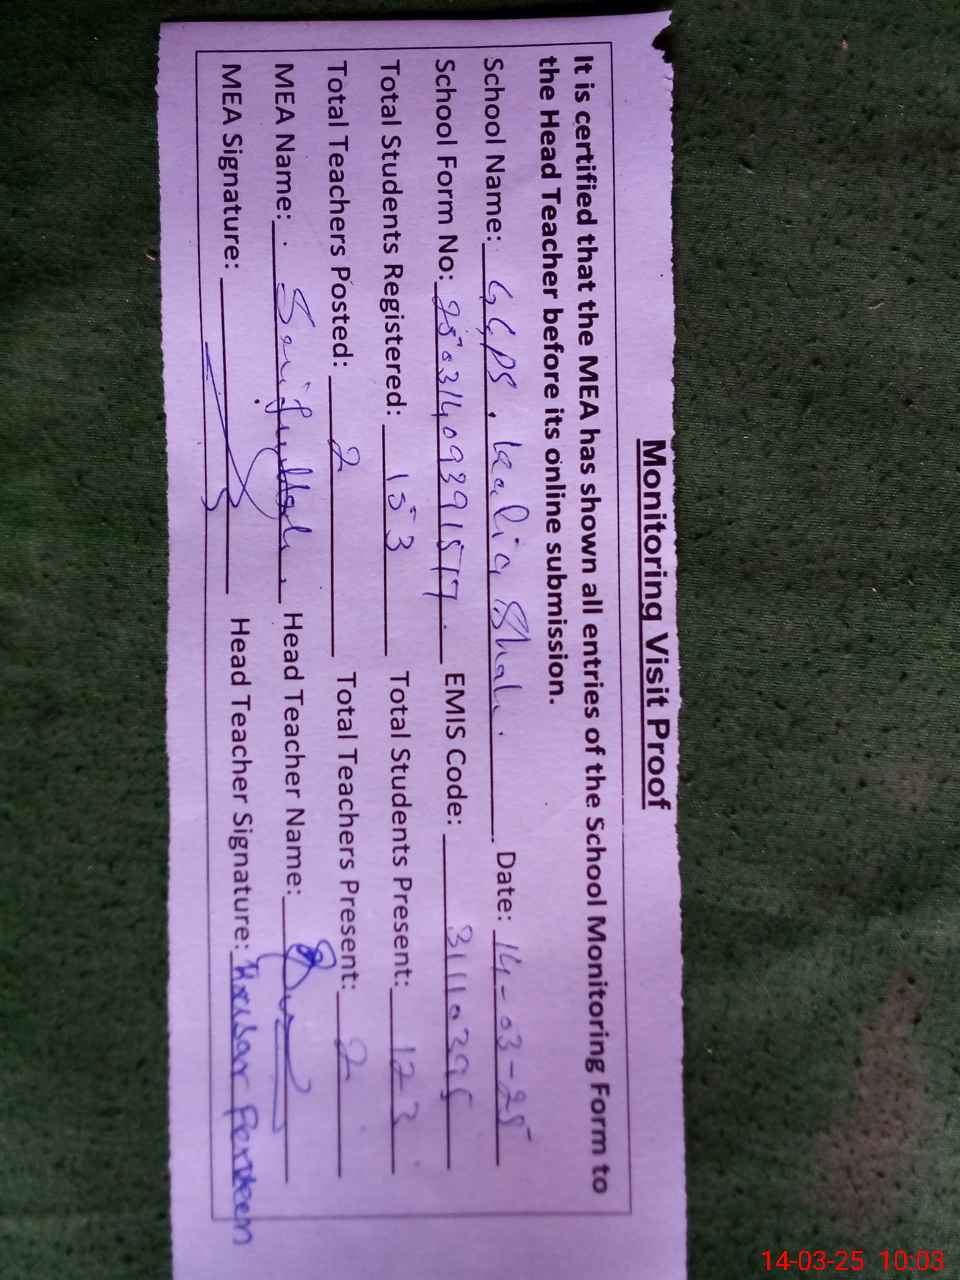 Monitoring Visit Proof
It is certified that the MEA has shown all entries of the School Monitoring Form to
the Head Teacher before its online submission.
School Name: GGPS, Kalia Shah. Date: 14-03-25
School Form No: 25031409391517. EMIS Code: 31110395
Total Students Registered: 153 Total Students Present: 123
Total Teachers Posted: 2 Total Teachers Present: 2
MEA Name: Saifullah, Head Teacher Name:
MEA Signature: Head Teacher Signature: Perveen
14-03-25 10:03